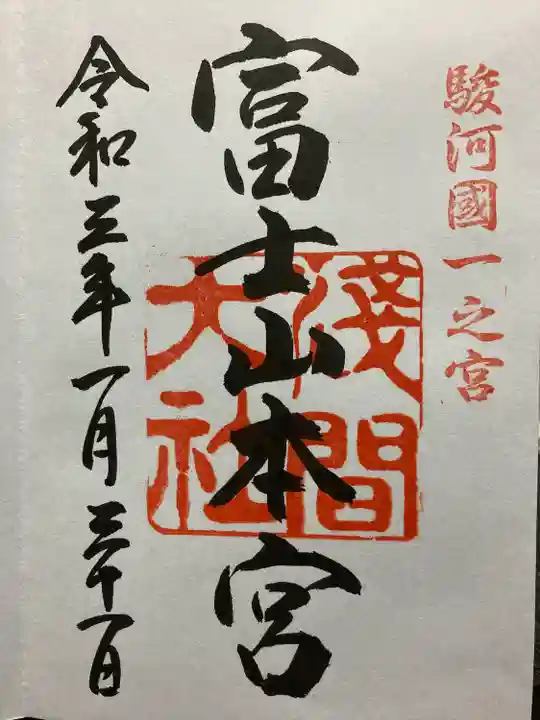 駿河國一之宮
富士山本宮
淺間
大社
令和三年一月三十一日